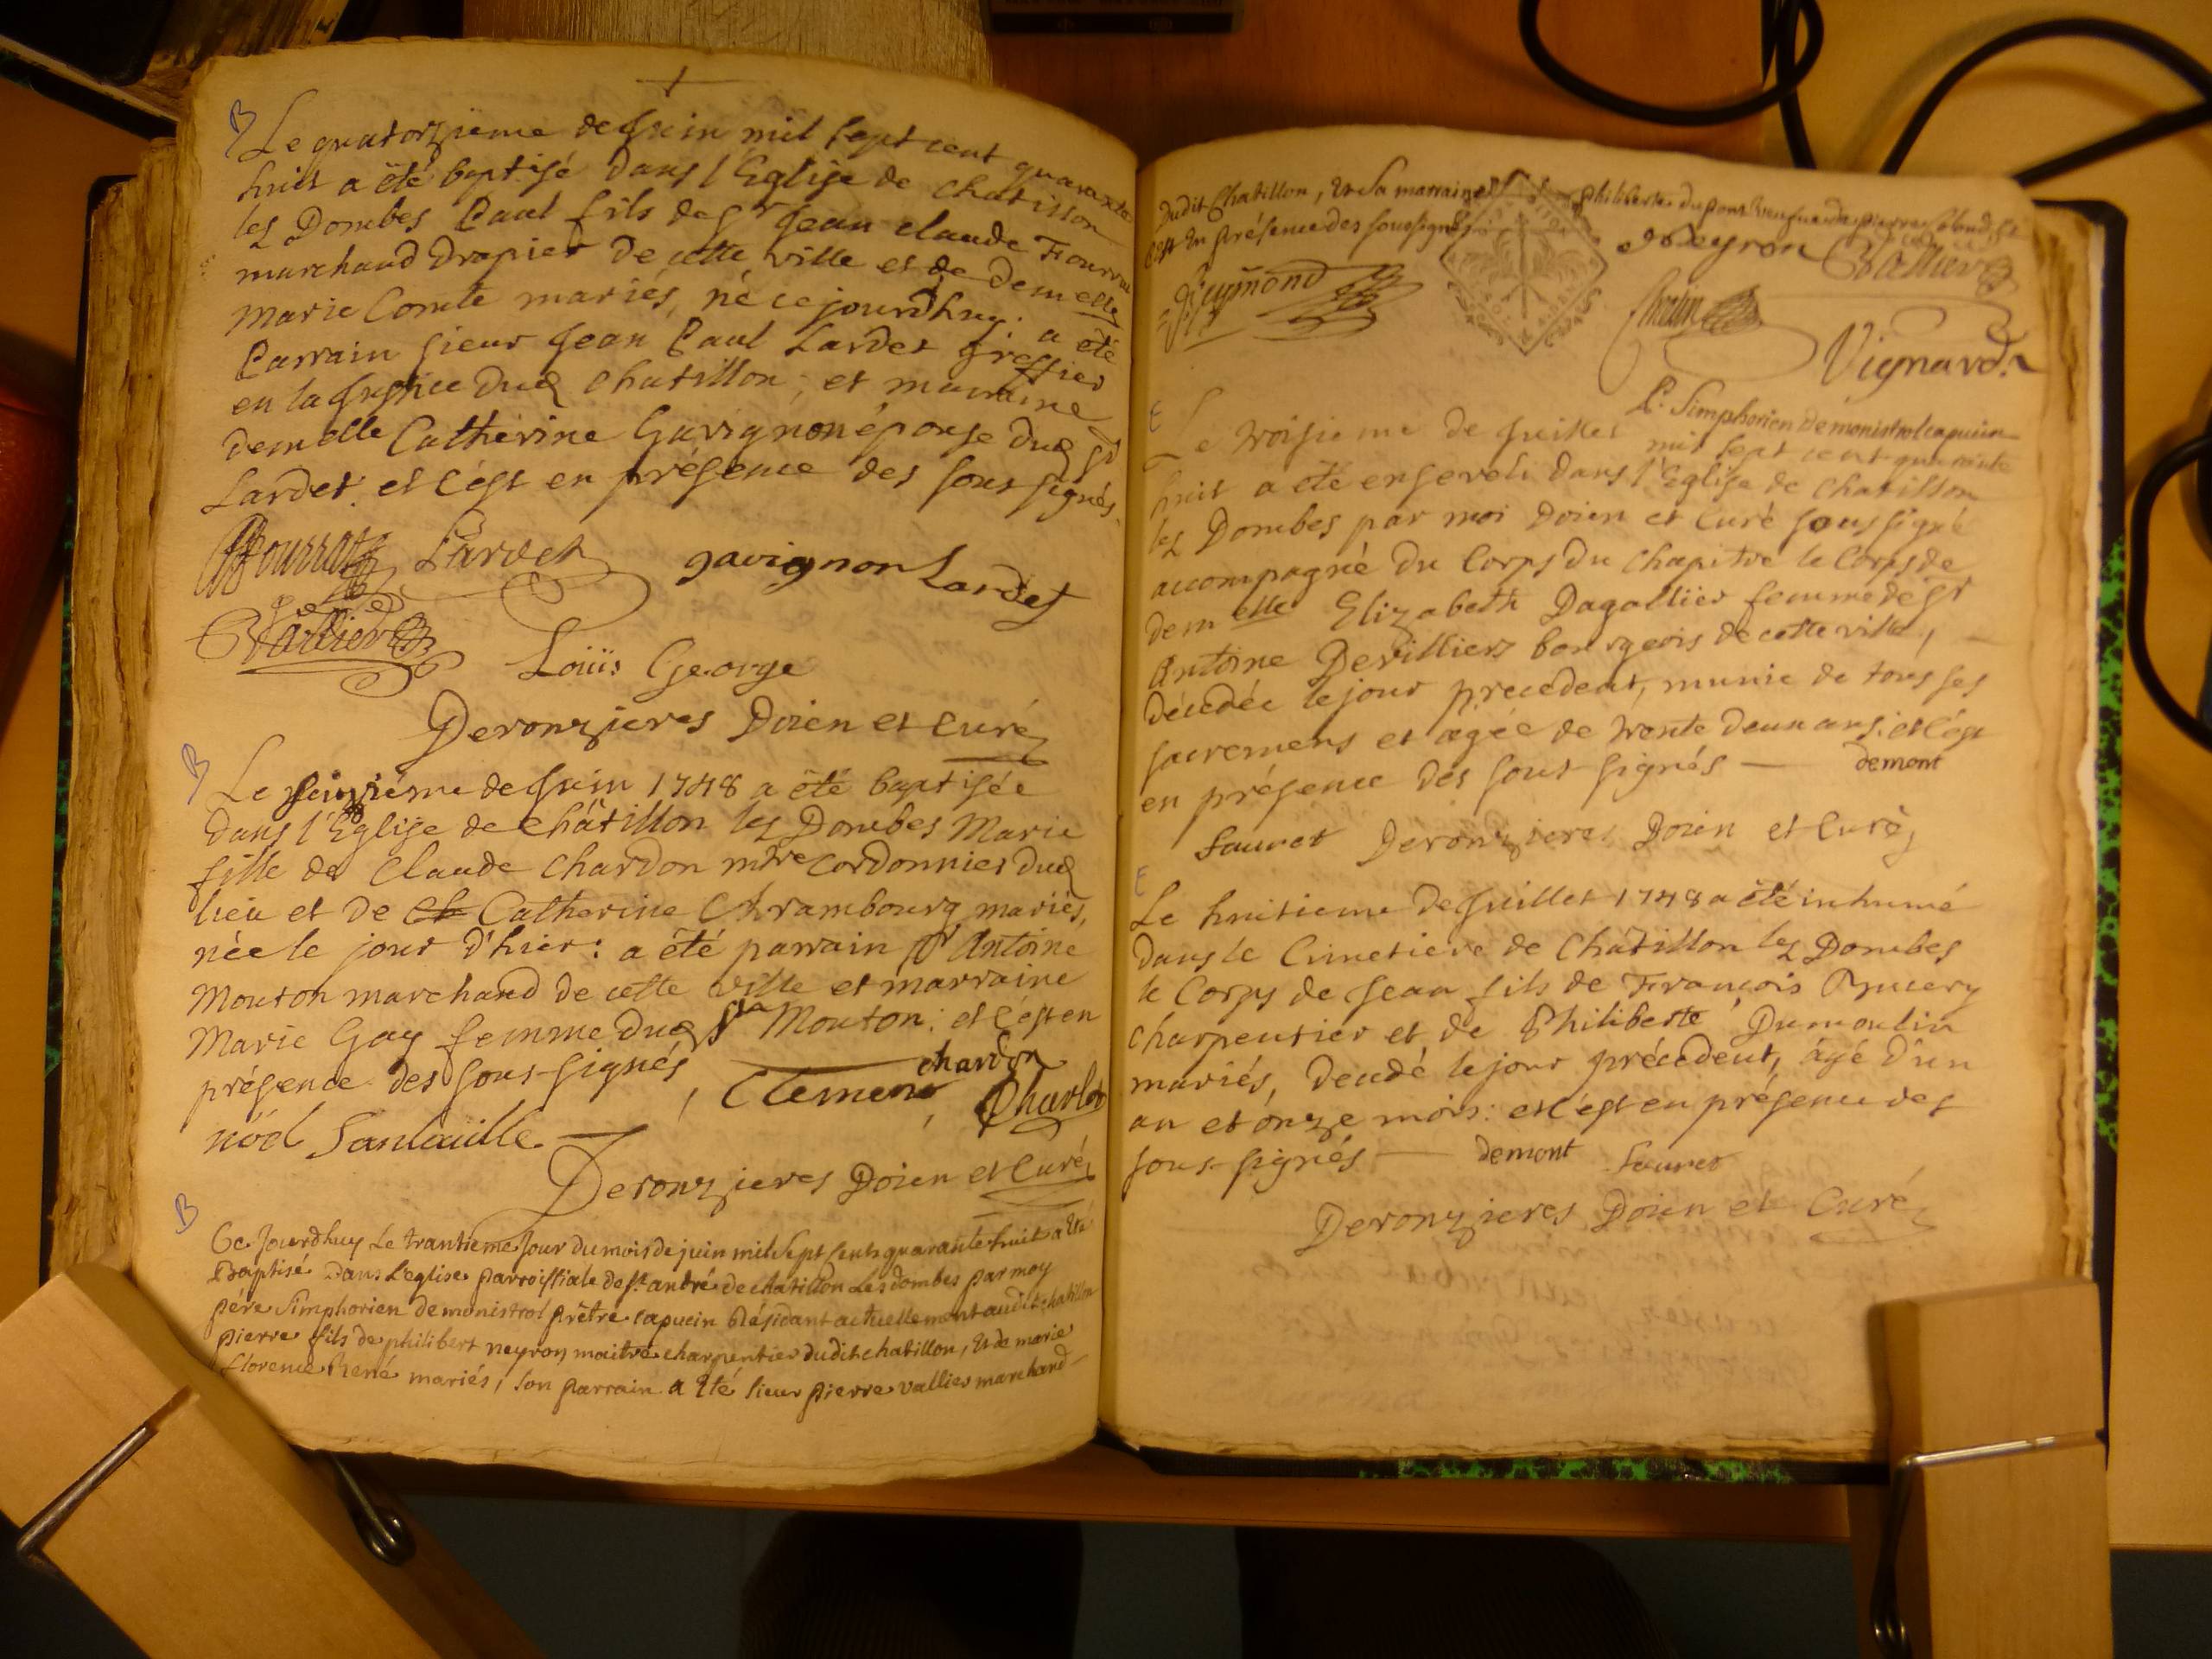 B
Le quatorzieme de Juin mil sept cent quarante
huit a été baptisé dans l'Eglise de chatillon
lez Dombes Paul fils de Sr Jean claude Fourrat
marchand Drapier de cette ville et de demelle
Marie Comte mariés, né ce jourdhuy: a été
Parrain sieur Jean Paul Lardet greffier
en la Justice dud chatillon, et marraine
demelle Catherine Gavignon épouse dud Sr
Lardet. et c'est en présence des soussignés.
Fourrat Lardet gavignon Lardet
Vallier
Loüis George
Deronzieres Doien et Curé
B
Le seizième de Juin 1748 a été baptisée
dans l'Eglise de châtillon lez Dombes Marie
fille de Claude Chardon mtre Cordonnier dud
lieu et de Catherine Chrambourg mariés,
née le jour d'hier: a été parrain Sr Antoine
Mouton marchand de cette ville et marraine
Marie Gay femme dud Sr Mouton: et c'est en
présence des sous-signés, Clement chardon
Charlot
nöel Santaille
Deronzieres Doien et Curé
B
Ce Jourdhuy Le trantieme Jour du mois de juin mil sept cents quarante huit a Eté
Baptisé Dans L'eglise parroissiale de St andré de chatillon Les dombes par moy
père Simphorien de monistrol prêtre capucin Résidant actuellemant audit chatillon
pierre fils de philibert neyron maitre charpentier dudit chatillon, Et de marie
florence René mariés, son parrain a Eté sieur pierre vallier marchand
dudit Chatillon, Et Sa marraine philiberte dupont
c'est En présence des soussignés. Neyron Vallier
Reymond
Vignard
P. Simphorien de monistrol capucin
E
Le troisieme de Juillet mil sept cent quarante
huit a été enseveli dans l'Eglise de Chatillon
lez Dombes par moi Doien et Curé soussigné
accompagné du Corps du Chapitre le Corps de
demelle Elizabeth Dagallier femme de Sr
Antoine Devilliers bourgeois de cette ville,
décédée le jour précedent, munie de tous ses
sacremens et agée de trente deux ans: et c'est
en présence des sous-signés — demont
Sauret Deronzieres Doien et Curé
E
Le huitieme de Juillet 1748 a été inhumé
dans le Cimetiere de Châtillon lez Dombes
le Corps de Jean fils de François
charpentier et de Philiberte Dumoulin
mariés, Decedé le jour précédent, âgé d'un
an et onze mois: et c'est en présence des
sous-signés — demont Sauret
Deronzieres Doien et Curé